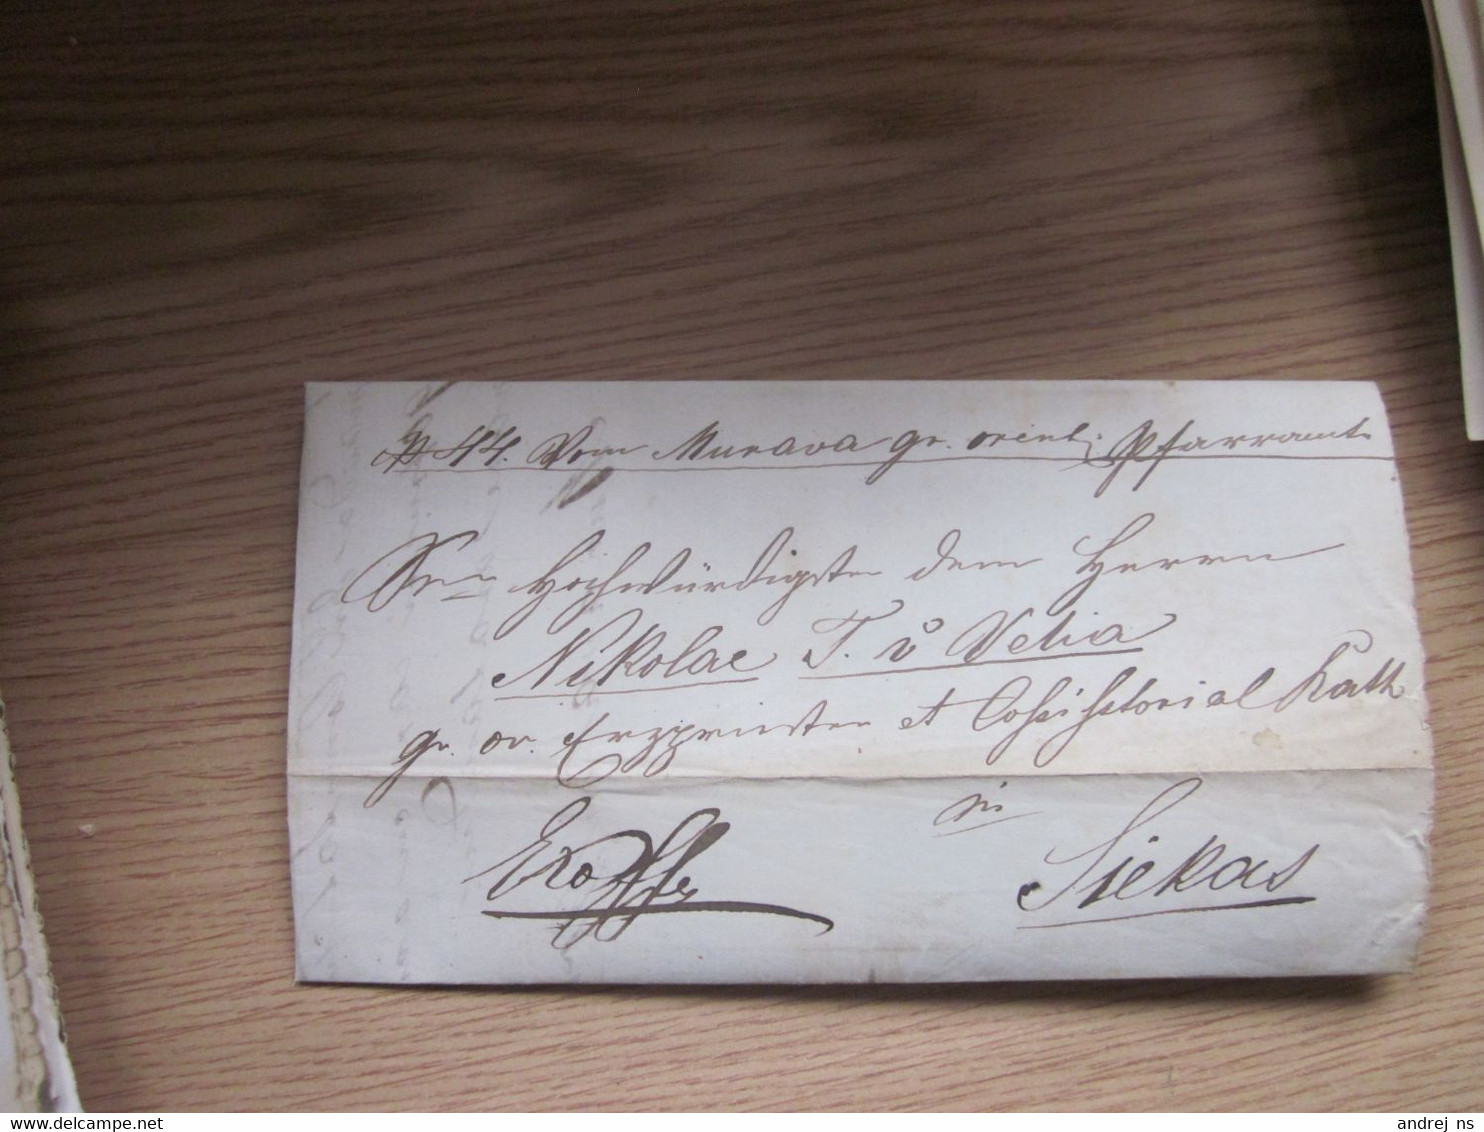 # 44. Vom Murava gr. orient: Pfarramt
Sr Hochwürdigster dem Herrn
Nikolae T. v Velia
gr. or. Erzpriester et Cossisstorial Rath
in
Exoffo Siekas
andrej ns
delcampe.net